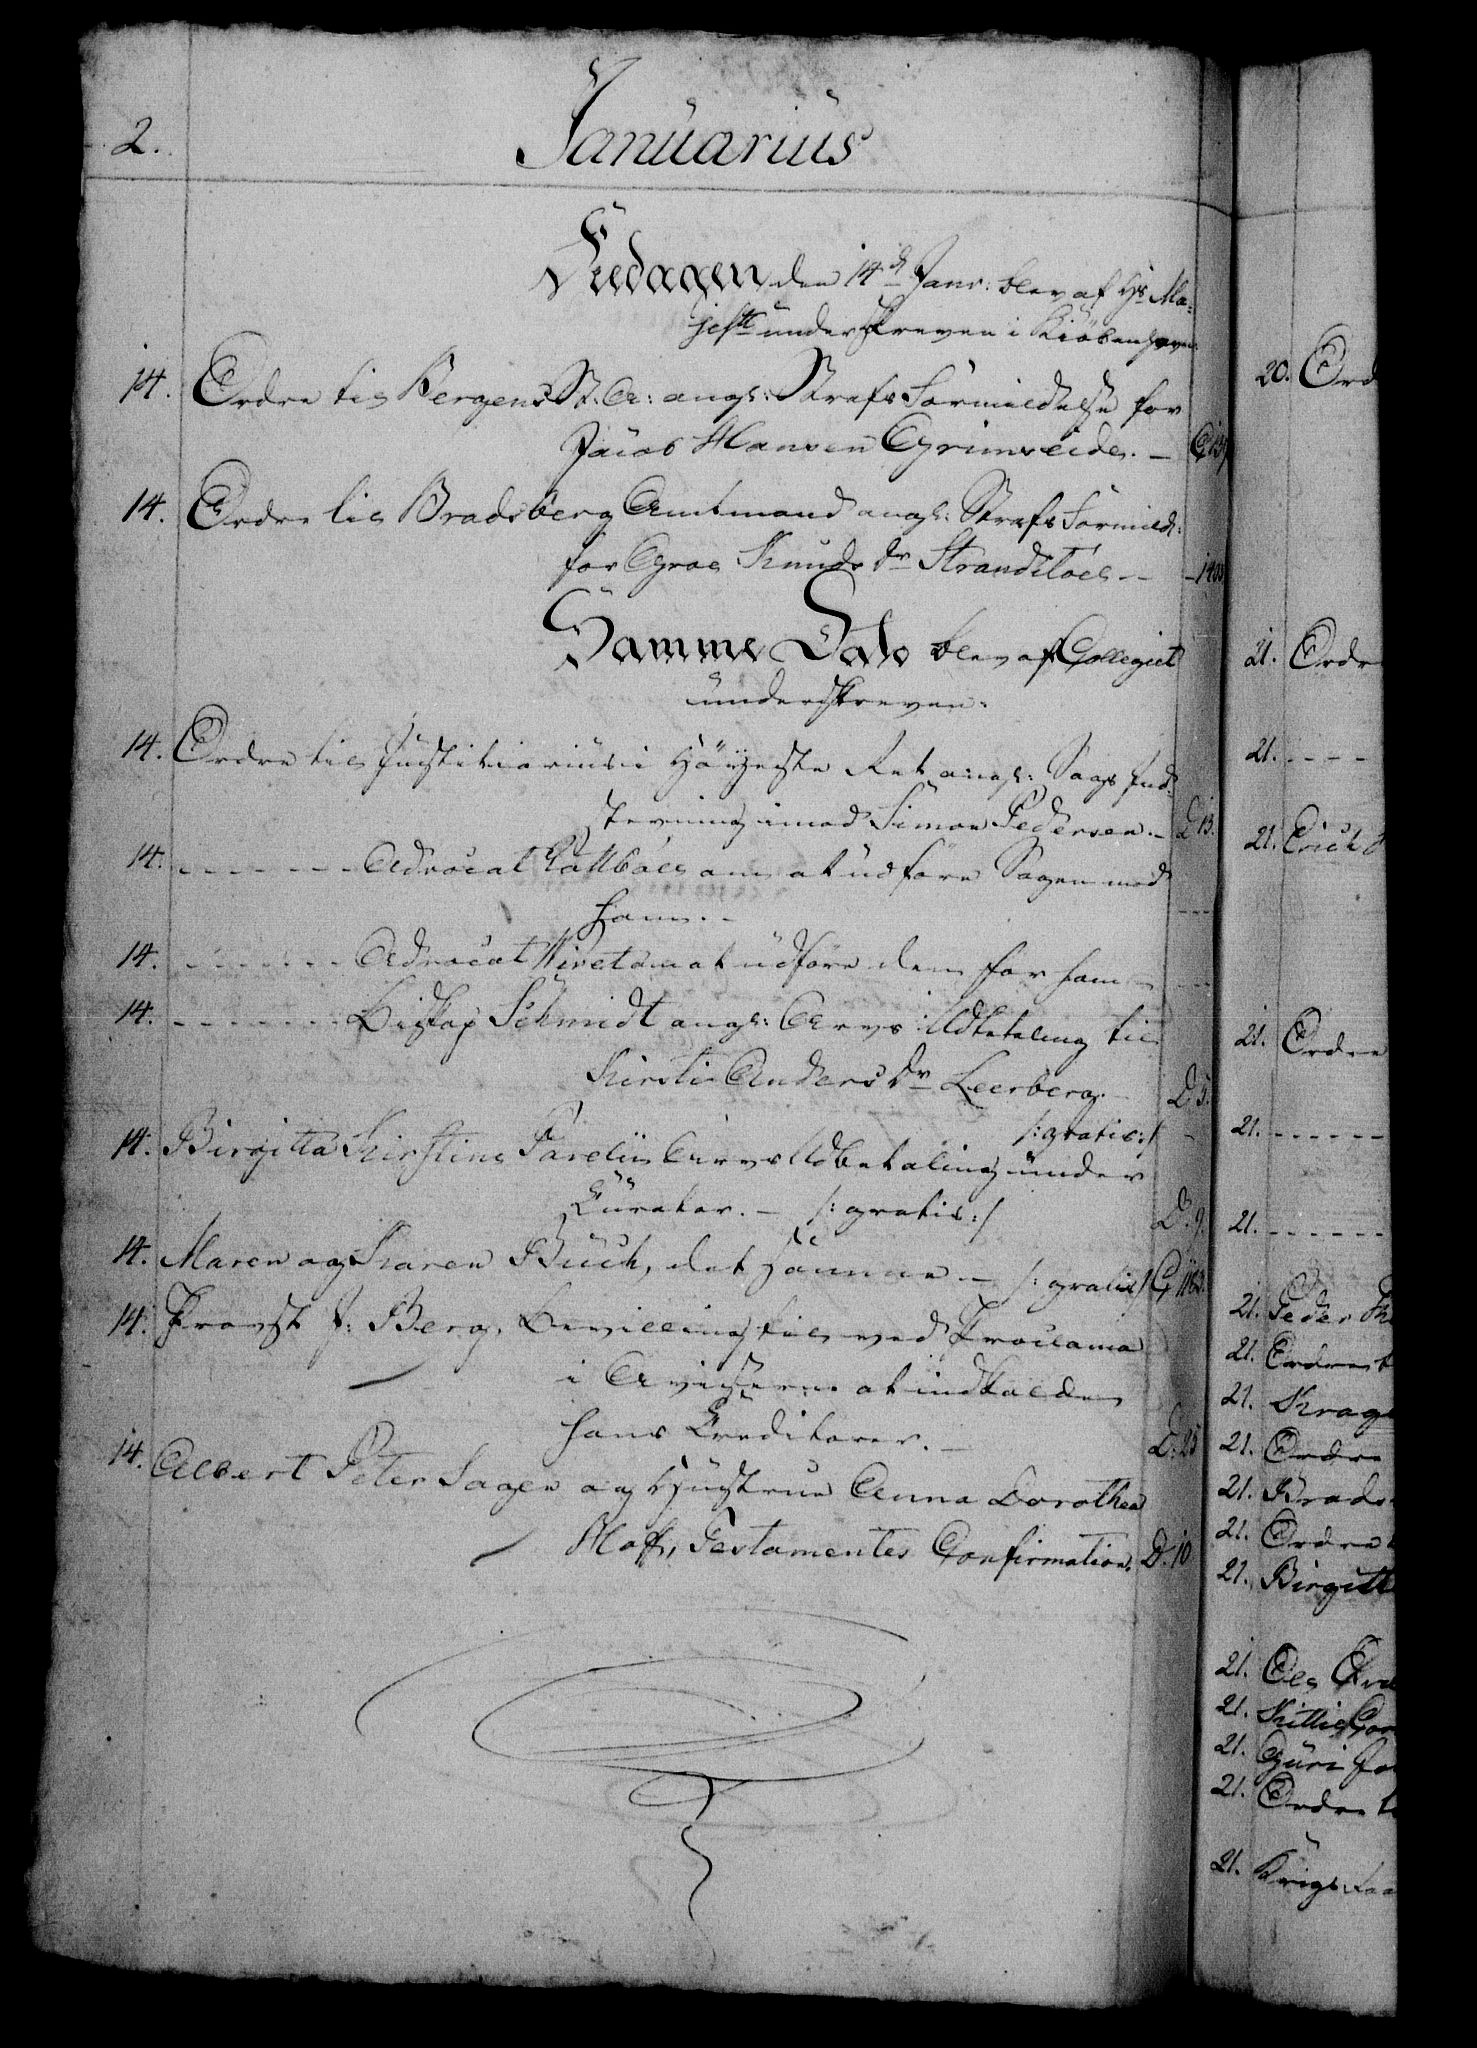 2.
Januarius
Fredagen den 14de Janr: blev af Hs Ma-
jestt underskreven i Kiöbenhavn.
14. Ordre til Bergens St. A: angl: Strafs Formildelse for
Jacob Hansen Grimseide. — G 139
14. Ordre til Bradsberg Amtmand angl: Strafs Formild:
for Groe Knuds Dr Strandstoel — – 1403
Samme Dato blev af Collegiet
underskreven.
14. Ordre til Justitiarius i Höyeste Ret angl: Sags Ind-
stevning imod Simon Pedersen. – D 13.
14. - - - - - - Advocat Rottböll om at udföre Sagen mod
ham. –
14. - - - - - - Advocat Wivet om at udföre den for ham –
14. - - - - - - Biskop Schmidt angl: Arvs Udbetaling til
Kirsti Anders Dr Leerberg. – D 5.
/: gratis :/
14. Birgitta Kirstine Parelii Arvs Udbetaling under
Curator. – /: gratis :/ D. 9.
14. Maren og Karen Buch, det samme – /: gratis :/ G 1183.
14. Provst J: Berg, Bevilling til ved Proclama
i Aviserne at indkalde
hans Creditorer. – D. 25
14. Albert Peter Sagen og Hustrue Anna Dorothea
Hoff, Testamentes Confirmation. D. 10
20. Ord
21. Ordr
21. - - - -
21. Erich
21. Ordre
21. - - - - - -
21. - - - - - -
21. Peder
21. Ordre t
21. Krag
21. Ordre
21. Brads
21. Ordre
21. Birgitt
21. Ole
21. Kittil
21. Guri
21. Ordre t
21. Krigs